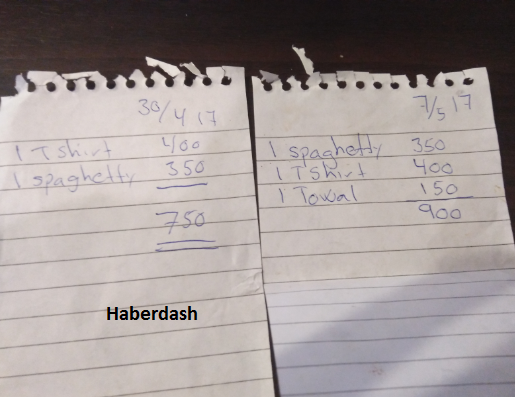 30/4 17
1 T shirt 400
1 spaghetty 350
750
Haberdash
7/5 17
1 spaghetty 350
1 TShirt 400
1 Towal 150
900